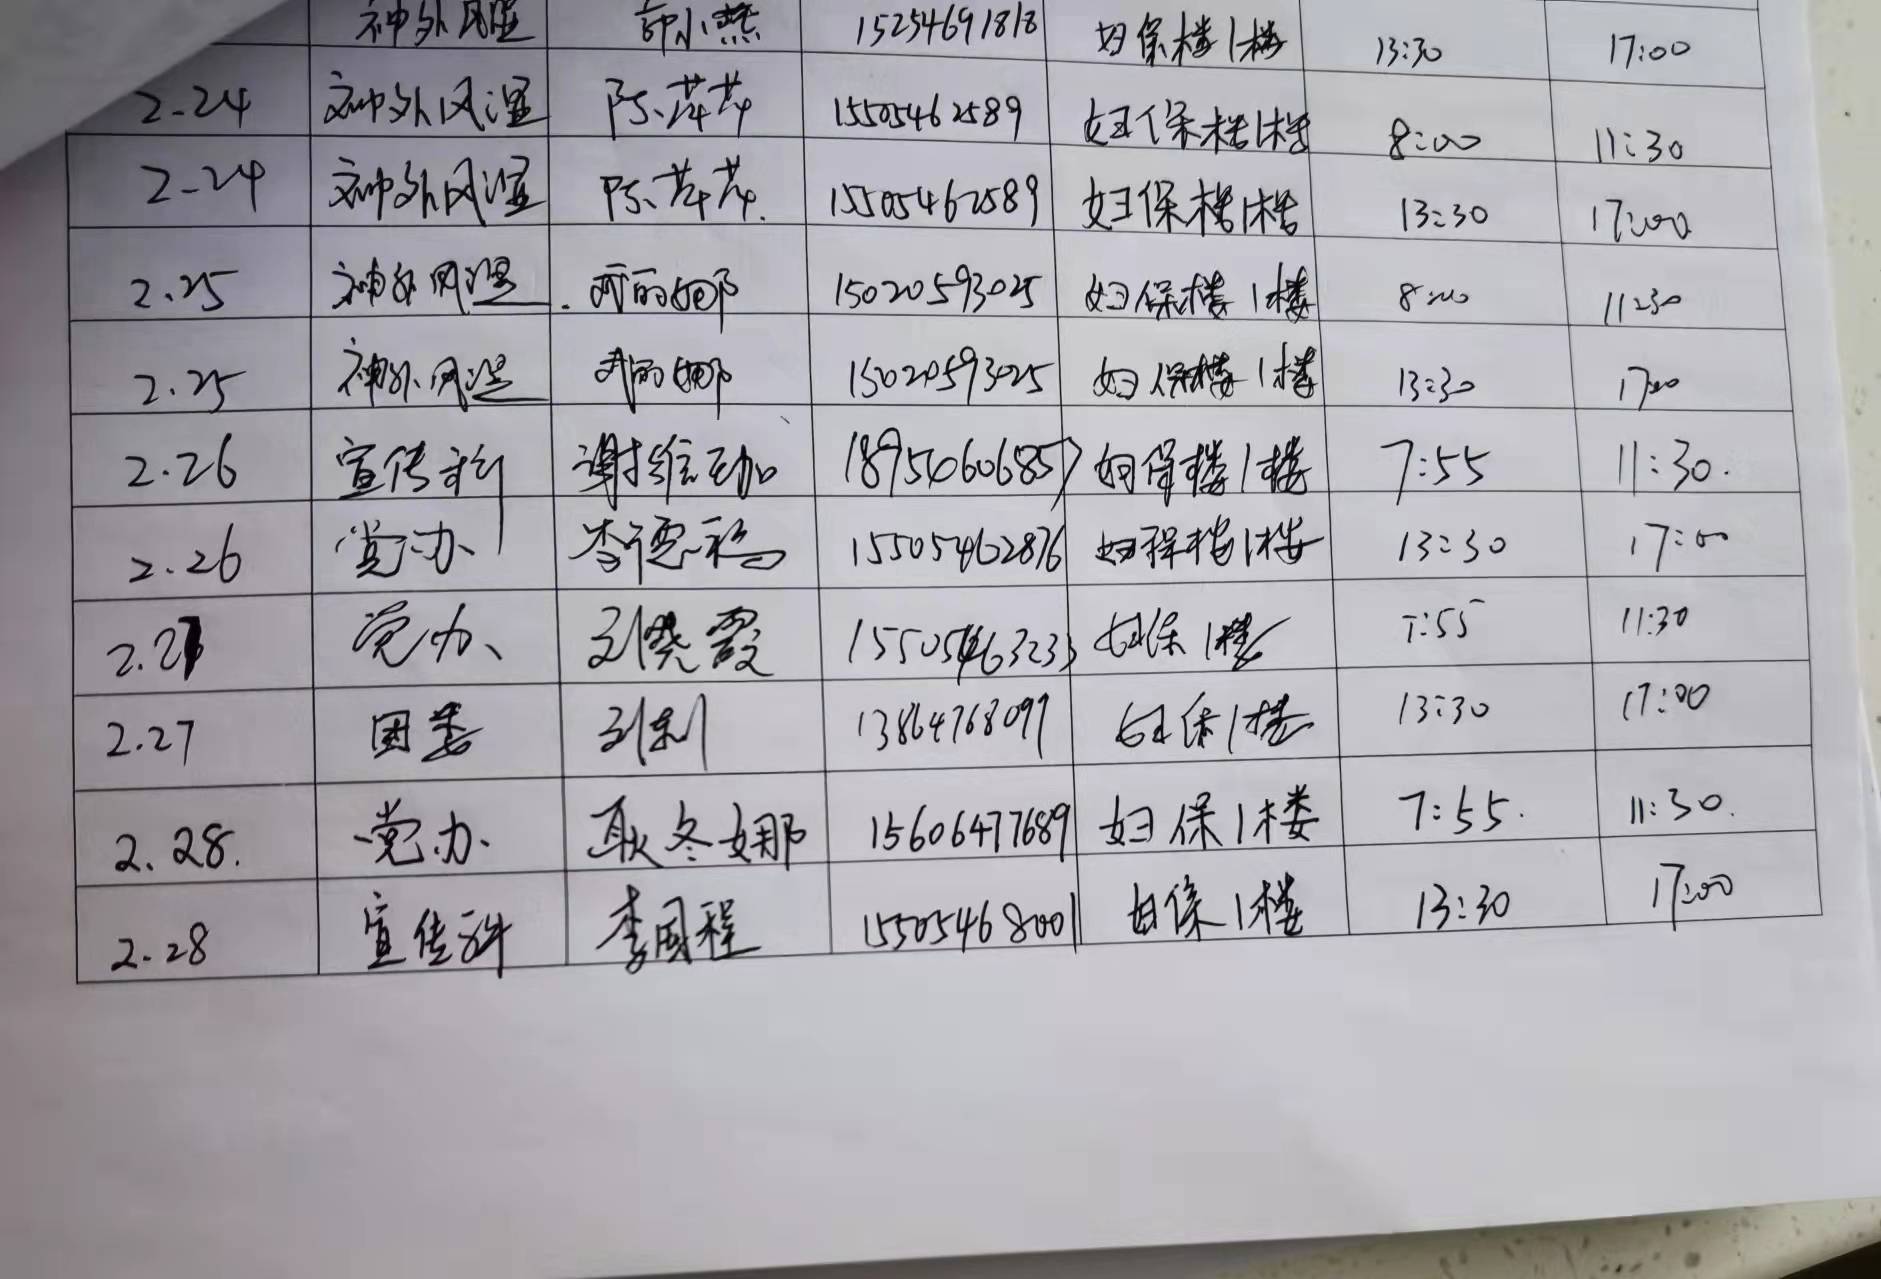 神外风湿 郭小燕 15254691818 妇保楼1楼 13:30 17:00
2-24 神外风湿 陈芹芹 15505462589 妇保楼1楼 8:00 11:30
2-24 神外风湿 陈芹芹. 15505462589 妇保楼1楼 13:30 17:00
2.25 神外风湿 丽娜 15020593025 妇保楼1楼 8:00 11:30
2.25 神外风湿 丽娜 15020593025 妇保楼1楼 13:30 17:00
2.26 宣传科 谢维 18954060685 妇保楼1楼 7:55 11:30.
2.26 党办 李德福 15505462876 妇保楼1楼 13:30 17:00
2.27 党办、 刘晓霞 15505463233 妇保1楼 7:55 11:30
2.27 团委 刘 13864768097 妇保1楼 13:30 17:00
2.28. 党办. 耿冬娜 15606477689 妇保1楼 7:55. 11:30.
2.28 宣传科 李国程 15505468001 妇保1楼 13:30 17:00